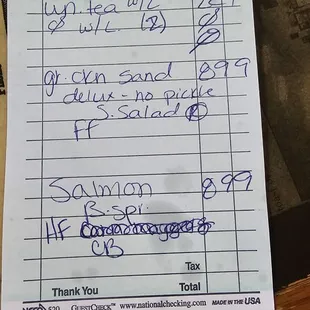 tea W/L
Ø W/L (2) Ø
Ø
gr. ckn sand 899
delux - no pickle
S. Salad R
FF
Salmon 899
B. spr.
HF
CB
Tax
Thank You Total
520 GUESTCHECK™ www.nationalchecking.com MADE IN THE USA